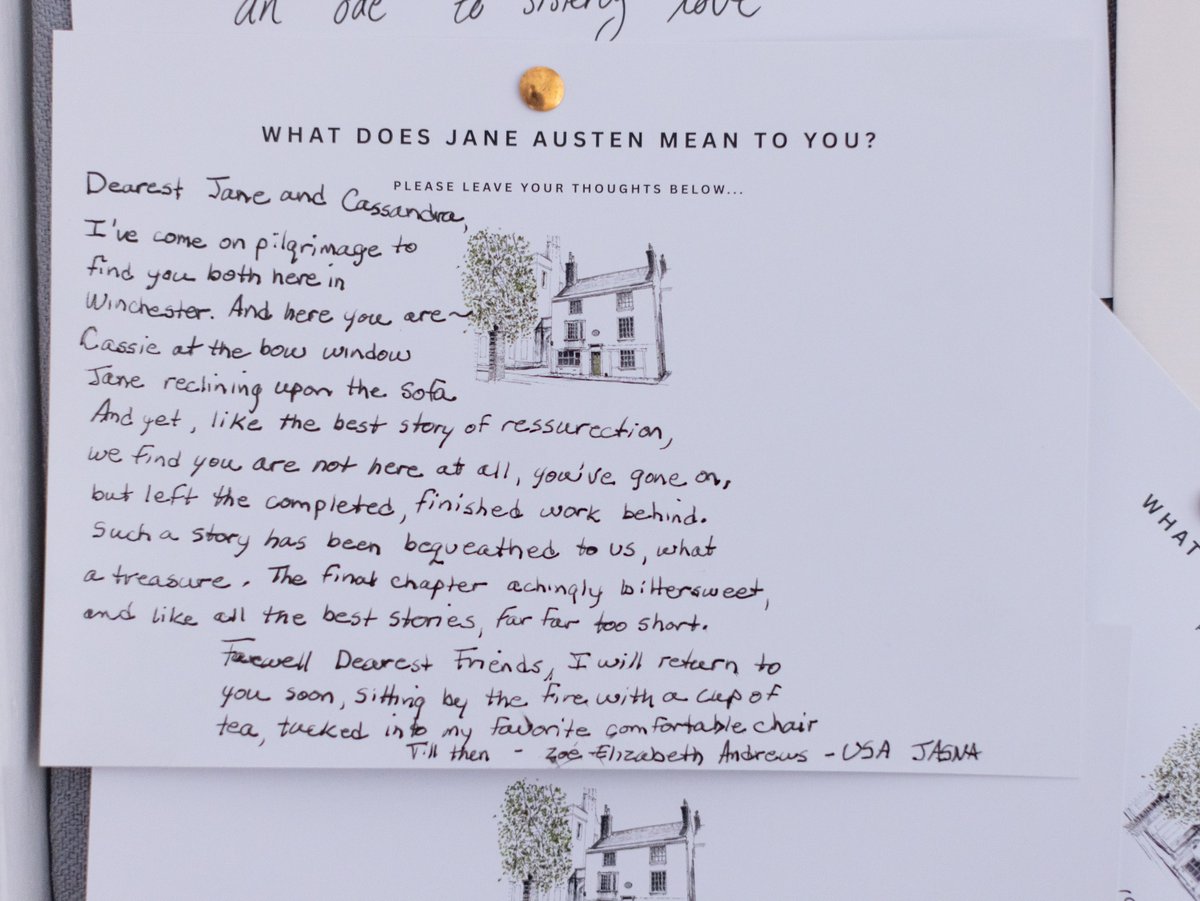 an ode to sisterly love
WHAT DOES JANE AUSTEN MEAN TO YOU?
PLEASE LEAVE YOUR THOUGHTS BELOW...
Dearest Jane and Cassandra,
I've come on pilgrimage to
find you both here in
Winchester. And here you are~
Cassie at the bow window
Jane reclining upon the sofa
And yet, like the best story of ressurection,
we find you are not here at all, you've gone on,
but left the completed, finished work behind.
Such a story has been bequeathed to us, what
a treasure. The final chapter achingly bittersweet,
and like all the best stories, far far too short.
Farewell Dearest Friends, I will return to
you soon, sitting by the fire with a cup of
tea, tucked into my favorite comfortable chair
Till then - Zoé Elizabeth Andrews - USA JASNA
WHAT